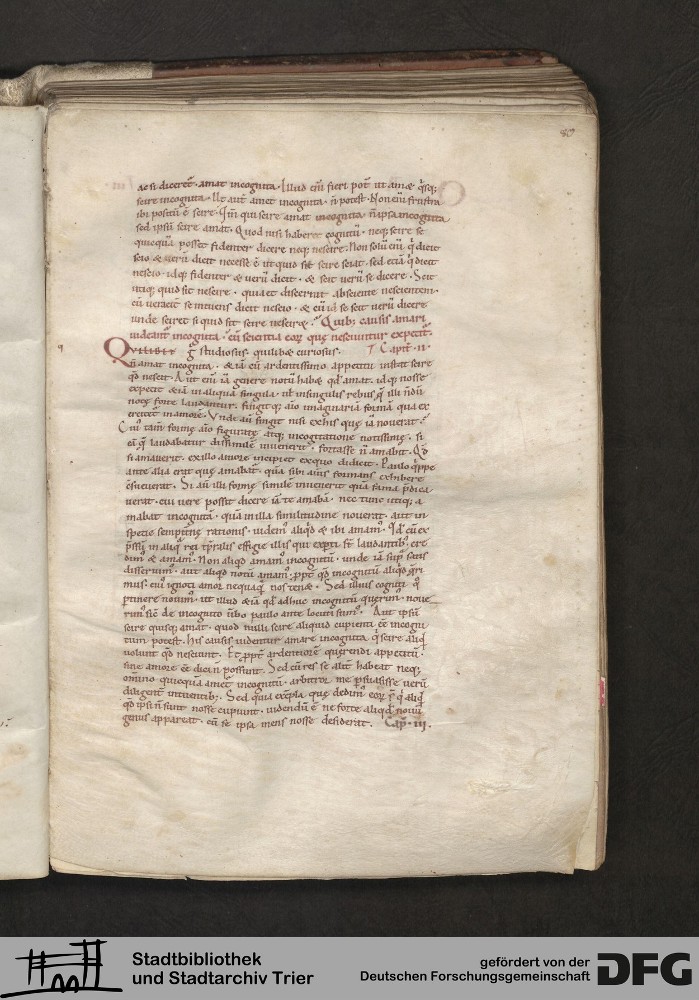 80
ac si diceret̃ · amat incognita · Illud eni͂ fieri pot̃ ut amet q̃sq;
scire incognita · Ut aut̃ amet incognita · n̄ potest · Non eni͂ frustra
ibi positũ ẽ scire · Qm̃ qui scire amat incognita · n̄ ipsa incognita
sed ipsũ scire amat · Quod nisi haberet cognitũ · neq; scire se
quicquã posset fidenter dicere neq; nescire · Non solũ eni͂ q̃ dicit
scio & uerũ dicit necesse ẽ ut quid sit scire sciat · sed etiã q̃ dicit
nescio · idq; fidenter & uerũ dicit · & scit uerũ se dicere · Scit
utiq; quid sit nescire · quia et discernit ab sciente nescientem ·
cũ ueracit̃ se intuens dicit nescio · & cũ id se scit uerũ dicere
unde sciret si quid sit scire nesciret · Quib; causis amari
uideant̃ incognita · cũ scientia eorũ quę nesciuntur expetit̃ ·
QVILIBET g̃ studiosus · quilibet curiosus · Capit̃ · ii ·
n̄ amat incognita · & iã cũ ardentissimo appetitu instat scire
qd̃ nescit · Aut eni͂ iã genere notũ habet qd̃ amat · idq; nosse
expetit & iã in aliqua singula · ul̃ in singulis rebus q̃ illi n̄dũ
notę forte laudantur · fingitq; aĩo imaginariã formã qua ex
citet̃ in amorẽ · Unde aũ fingit nisi ex his quę iã nouerat ·
Cui͂ tam̃ formę aĩo figuratę atq; in cogitatione notissimę · si
eũ q̃ laudabatur dissimilẽ inuenerit · fortasse n̄ amabit · Qd̃
si amauerit · ex illo amare incipiet ex quo didicit · Paulo q̃ppe
ante alia erat quę amabat̃ · quã sibi aĩus formans exhibere
c̃sueuerat · Si aũ illi formę similẽ inuenerit quã fama p̃dica
uerat · cui uere possit dicere iã te amabã · nec tunc utiq; a
mabat incognitã · quã in illa similitudine nouerat · aut in
specie sempit̃nę rationis · uidem̃ aliqd̃ & ibi amam̃ · Qd̃ cũ ex
p̃ssũ in aliq̃ rei tp̃ralis effigie illis qui exp̃ti st̃ laudantib; cre
dim̃ & amam̃ · Non aliqd̃ amam̃ incognitũ · unde iã sup̃ satis
disseruim̃ · aut aliqd̃ notũ amam̃ · p̃pt̃ qd̃ incognitũ aliqd̃ q̃ri
mus · cui͂ ignoti amor nequaquã nos tenet · Sed illius cogniti q̃
p̃tinere nouim̃ · ut illud & iã qd̃ adhuc incognitũ querim̃ · noue
rim̃ · sic̃ de incognito ũbo paulo ante locuti sum̃ · Aut ipsũ
scire quisq; amat · quod nulli scire aliquid cupienti ẽe incogni
tum potest · His causis uidentur amare incognita q̃ scire aliqd̃
uolunt qd̃ nesciunt · Et p̃pt̃ ardentiorẽ querendi appetitũ ·
sine amore ẽe dici n̄ possunt · Sed cũ res se alit̃ habeat neq;
om̃ino quicquã amet̃ incognitũ · arbitror me p̃suasisse uerũ
diligent̃ intuentib; · Sed quia exẽpla quę dedim̃ eorũ st̃ q̃ aliqd̃
qd̃ ipsi n̄ sunt nosse cupiunt · uidendũ ẽ ne forte aliqd̃ nouũ
genus appareat · cũ se ipsa mens nosse desiderat · Cap̃ · iii ·
Stadtbibliothek
und Stadtarchiv Trier
gefördert von der
Deutschen Forschungsgemeinschaft
DFG